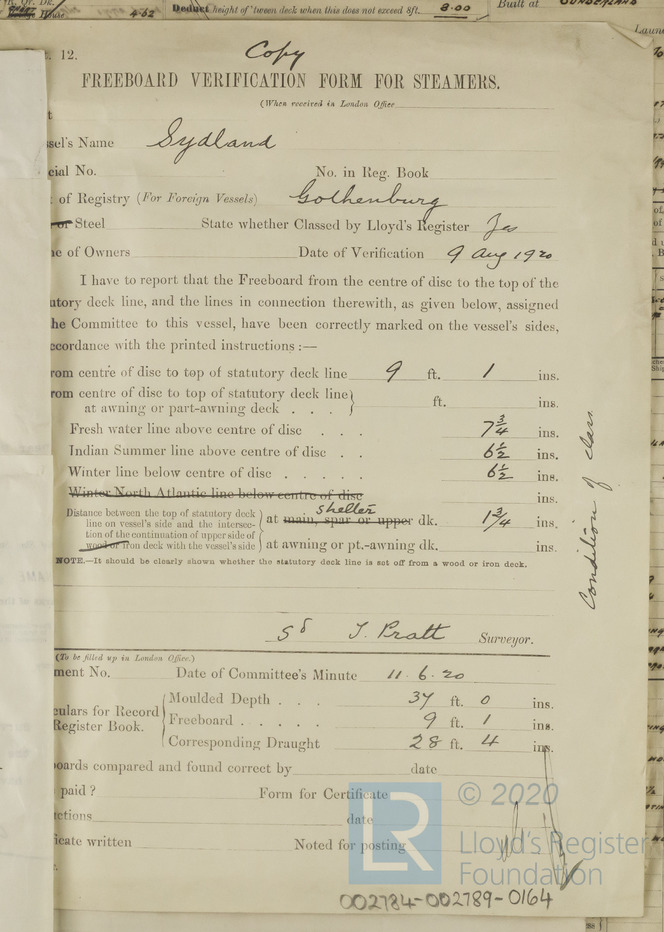 4-62 Deduct height of 'tween deck when this does not exceed 8ft. 8.00 Built at SUNDERLAND
12. Copy
FREEBOARD VERIFICATION FORM FOR STEAMERS.
(When received in London Office
sel's Name Sydland
cial No. No. in Reg. Book
of Registry (For Foreign Vessels) Gothenburg
or Steel State whether Classed by Lloyd's Register Yes
e of Owners Date of Verification 9 Aug 1920
I have to report that the Freeboard from the centre of disc to the top of the
utory deck line, and the lines in connection therewith, as given below, assigned
he Committee to this vessel, have been correctly marked on the vessel's sides,
ccordance with the printed instructions :—
rom centre of disc to top of statutory deck line 9 ft. 1 ins.
rom centre of disc to top of statutory deck line
at awning or part-awning deck . . . ft. ins.
Fresh water line above centre of disc . . . 7 3/4 ins.
Indian Summer line above centre of disc . . 6 1/2 ins.
Winter line below centre of disc . . . . . 6 1/2 ins.
Winter North Atlantic line below centre of disc ins.
Distance between the top of statutory deck
line on vessel's side and the intersec-
tion of the continuation of upper side of
wood or iron deck with the vessel's side
shelter
at main, spar or upper dk. 1 3/4 ins.
at awning or pt.-awning dk. ins.
NOTE.—It should be clearly shown whether the statutory deck line is set off from a wood or iron deck.
Condition of class
Sd J. Pratt Surveyor.
(To be filled up in London Office.)
ment No. Date of Committee's Minute 11.6.20
culars for Record
Register Book.
Moulded Depth . . . 37 ft. 0 ins.
Freeboard . . . . . 9 ft. 1 ins.
Corresponding Draught 28 ft. 4 ins.
oards compared and found correct by date
paid ? Form for Certificate
ctions date
icate written Noted for posting
LR © 2020
Lloyd's Register
Foundation
002784-002789-0164